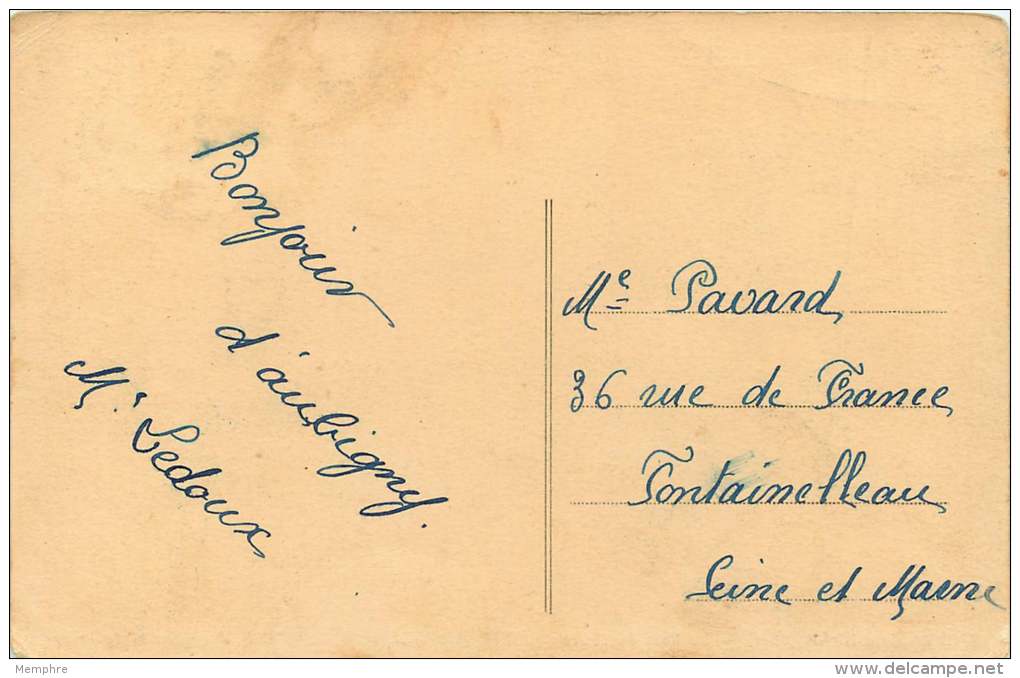 Bonjour
d'aubigny.
Me Ledoux
Me Pavard
36 rue de France
Fontainelleau
Seine et Marne
Memphre
delcampe.net